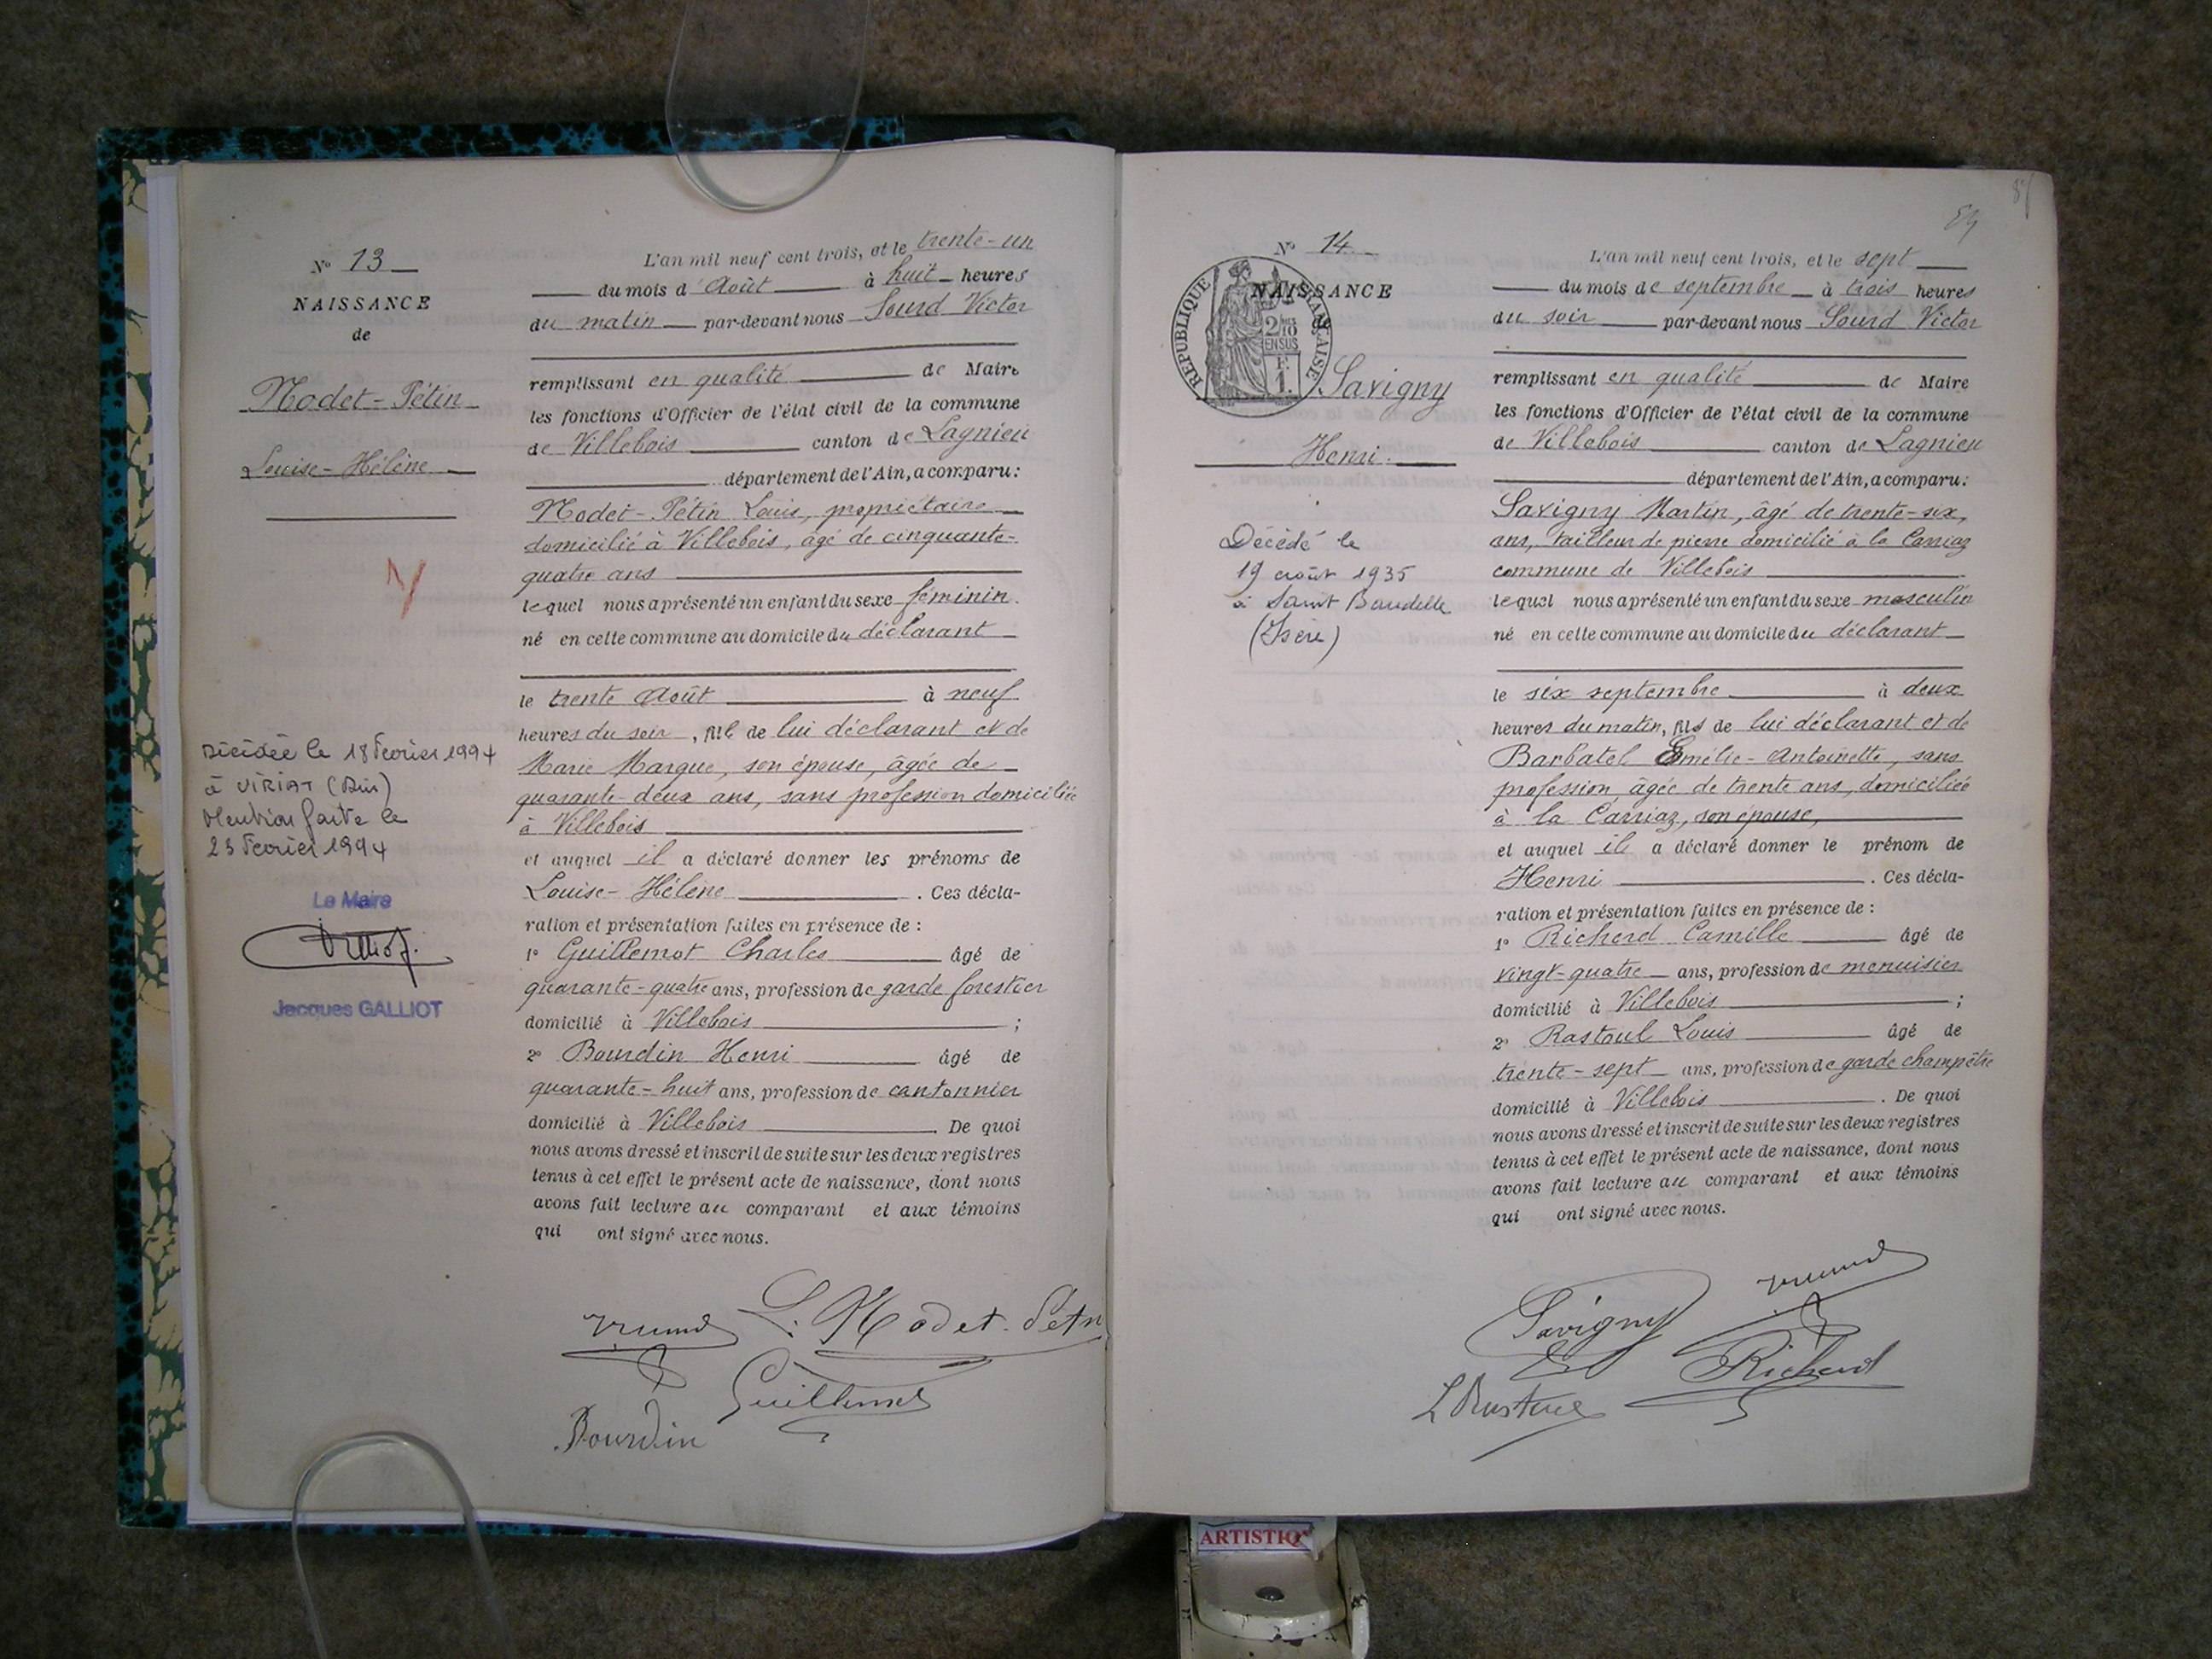 N° 13
NAISSANCE
de
Modet-Pétin
Louise-Hélène
Décédée le 18 Février 1994
à VIRIAT (Ain)
Mention faite le
23 Février 1994
Le Maire
Jacques GALLIOT
L'an mil neuf cent trois, et le trente-un
du mois d'Août à huit heures
du matin par-devant nous Sourd Victor
remplissant en qualité de Maire
les fonctions d'Officier de l'état civil de la commune
de Villebois canton de Lagnieu
département de l'Ain, a comparu:
Modet-Pétin Louis, propriétaire
domicilié à Villebois, âgé de cinquante-
quatre ans
lequel nous a présenté un enfant du sexe féminin.
né en cette commune au domicile du déclarant
le trente Août à neuf
heures du soir, fille de lui déclarant et de
Marie Marque, son épouse, âgée de
quarante-deux ans, sans profession domiciliée
à Villebois
et auquel il a déclaré donner les prénoms de
Louise-Hélène. Ces décla-
ration et présentation faites en présence de :
1° Guillemot Charles âgé de
quarante-quatre ans, profession de garde forestier
domicilié à Villebois ;
2° Bourdin Henri âgé de
quarante-huit ans, profession de cantonnier
domicilié à Villebois. De quoi
nous avons dressé et inscrit de suite sur les deux registres
tenus à cet effet le présent acte de naissance, dont nous
avons fait lecture au comparant et aux témoins
qui ont signé avec nous.
L. Modet-Petin
Guillemot
Bourdin
84
N° 14
NAISSANCE
de
REPUBLIQUE FRANÇAISE
2/10 EN SUS
F. 1.
Savigny
Henri.
Décédé le
19 août 1935
à Saint Baudille
(Isère)
L'an mil neuf cent trois, et le sept
du mois de septembre à trois heures
du soir par-devant nous Sourd Victor
remplissant en qualité de Maire
les fonctions d'Officier de l'état civil de la commune
de Villebois canton de Lagnieu
département de l'Ain, a comparu:
Savigny Martin, âgé de trente-six,
ans, tailleur de pierre domicilié à la Carriaz
commune de Villebois
lequel nous a présenté un enfant du sexe masculin
né en cette commune au domicile du déclarant
le six septembre à deux
heures du matin, fils de lui déclarant et de
Barbatel Emélie-Antoinette, sans
profession âgée de trente ans, domiciliée
à la Carriaz, son épouse,
et auquel il a déclaré donner le prénom de
Henri. Ces décla-
ration et présentation faites en présence de :
1° Richerd Camille âgé de
vingt-quatre ans, profession de menuisier
domicilié à Villebois ;
2° Rastoul Louis âgé de
trente-sept ans, profession de garde champêtre
domicilié à Villebois. De quoi
nous avons dressé et inscrit de suite sur les deux registres
tenus à cet effet le présent acte de naissance, dont nous
avons fait lecture au comparant et aux témoins
qui ont signé avec nous.
Savigny
Richerd
L Rastoul
ARTISTIQ